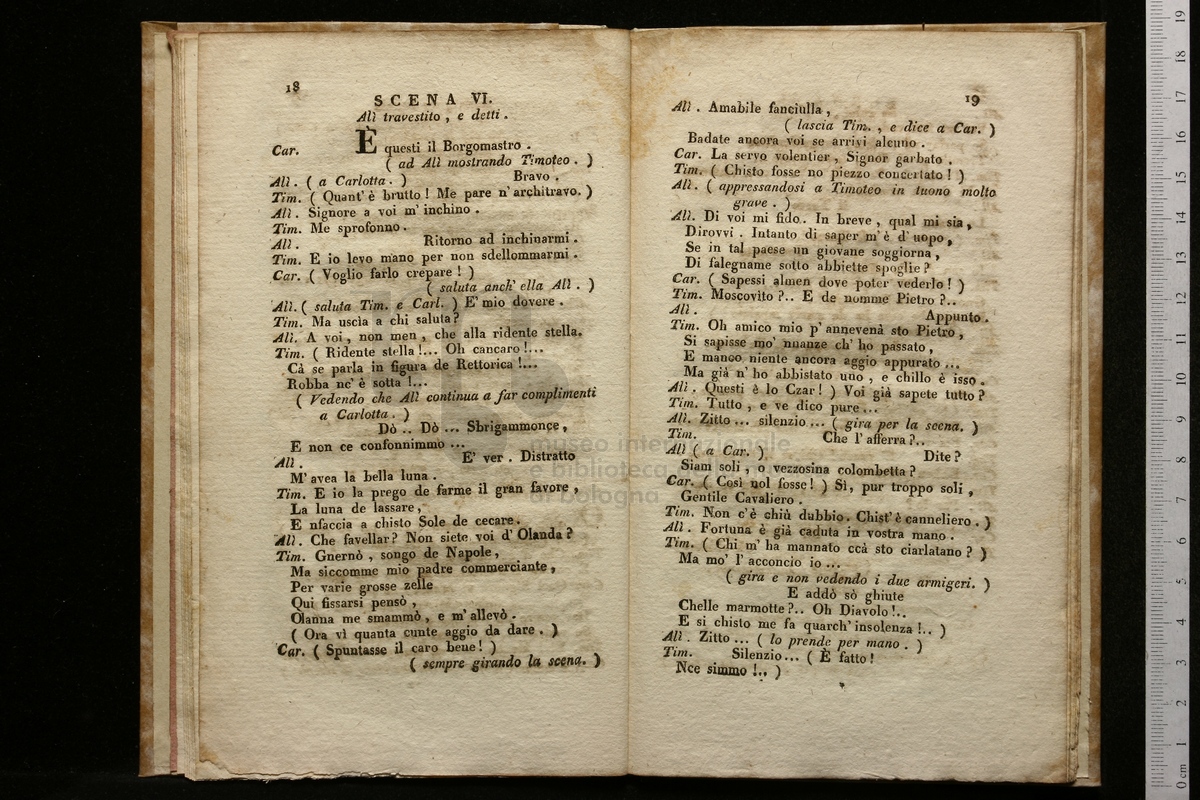 18
SCENA VI.
Alì travestito , e detti .
Car. È questi il Borgomastro .
( ad Alì mostrando Timoteo . )
Alì . ( a Carlotta . ) Bravo .
Tim. ( Quant' è brutto ! Me pare n' architravo. )
Alì . Signore a voi m' inchino .
Tim. Me sprofonno .
Alì . Ritorno ad inchinarmi .
Tim. E io levo mano per non sdellommarmi .
Car. ( Voglio farlo crepare ! )
( saluta anch' ella Alì . )
Alì. ( saluta Tim. e Carl. ) E' mio dovere .
Tim. Ma uscìa a chi saluta ?
Alì. A voi , non men , che alla ridente stella.
Tim. ( Ridente stella !... Oh cancaro !...
Cà se parla in figura de Rettorica !...
Robba nc' è sotta !...
( Vedendo che Alì continua a far complimenti
a Carlotta . )
Dò .. Dò ... Sbrigammonçe ,
E non ce confonnimmo ...
Alì . E' ver . Distratto
M' avea la bella luna .
Tim. E io la prego de farme il gran favore ,
La luna de lassare ,
E nfaccia a chisto Sole de cecare .
Alì . Che favellar ? Non siete voi d' Olanda ?
Tim. Gnernò , songo de Napole ,
Ma siccomme mio padre commerciante ,
Per varie grosse zelle
Qui fissarsi pensò ,
Olanna me smammò , e m' allevò .
( Ora vì quanta cunte aggio da dare . )
Car. ( Spuntasse il caro bene ! )
( sempre girando la scena. )
19
Alì . Amabile fanciulla ,
( lascia Tim. , e dice a Car. )
Badate ancora voi se arrivi alcuno .
Car. La servo volentier , Signor garbato .
Tim. ( Chisto fosse no piezzo concertato ! )
Alì. ( appressandosi a Timoteo in tuono molto
grave . )
Alì. Di voi mi fido .. In breve , qual mi sia ,
Dirovvi . Intanto di saper m' è d' uopo ,
Se in tal paese un giovane soggiorna ,
Di falegname sotto abbiette spoglie ?
Car. ( Sapessi almen dove poter vederlo ! )
Tim. Moscovito ?.. E de nomme Pietro ?..
Alì . Appunto .
Tim. Oh amico mio p' annevenà sto Pietro ,
Si sapisse mo' nnanze ch' ho passato ,
E manco niente ancora aggio appurato ...
Ma già n' ho abbistato uno , e chillo è isso .
Alì . Questi è lo Czar ! ) Voi già sapete tutto ?
Tim. Tutto , e ve dico pure ...
Alì. Zitto ... silenzio ... ( gira per la scena. )
Tim. Che l' afferra ?..
Alì ( a Car. ) Dite ?
Siam soli , o vezzosina colombetta ?
Car. ( Così nol fosse ! ) Sì, pur troppo soli ,
Gentile Cavaliero .
Tim. Non c' è chiù dubbio. Chist' è canneliero . )
Alì . Fortuna è già caduta in vostra mano .
Tim. ( Chi m' ha mannato ccà sto ciarlatano ? )
Ma mo' l' acconcio io ...
( gira e non vedendo i due armigeri. )
E addò sò ghiute
Chelle marmotte ?.. Oh Diavolo !..
E si chisto me fa quarch' insolenza !.. )
Alì . Zitto ... ( lo prende per mano . )
Tim. Silenzio ... ( È fatto !
Nce simmo !.. )
museo internazionale
e biblioteca
bologna
0 cm 1 2 3 4 5 6 7 8 9 10 11 12 13 14 15 16 17 18 19